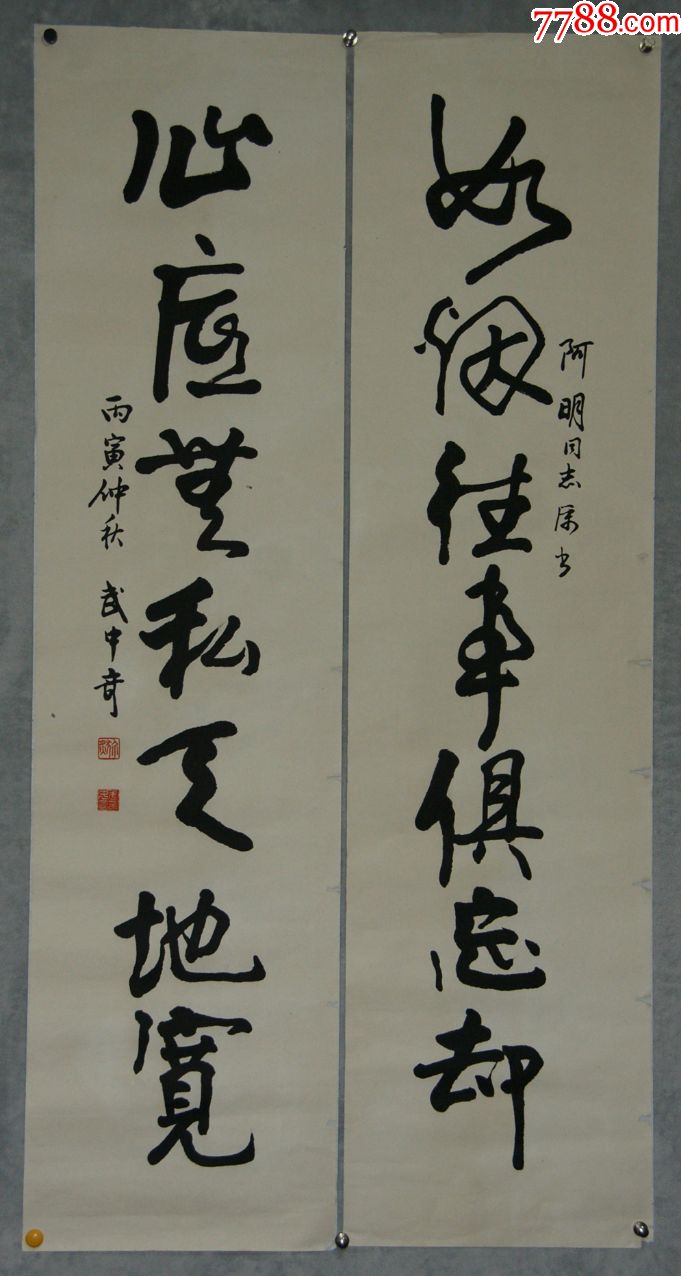 7788.com
阿明同志属书
如烟往事俱忘却
心底無私天地寬
丙寅仲秋 武中奇